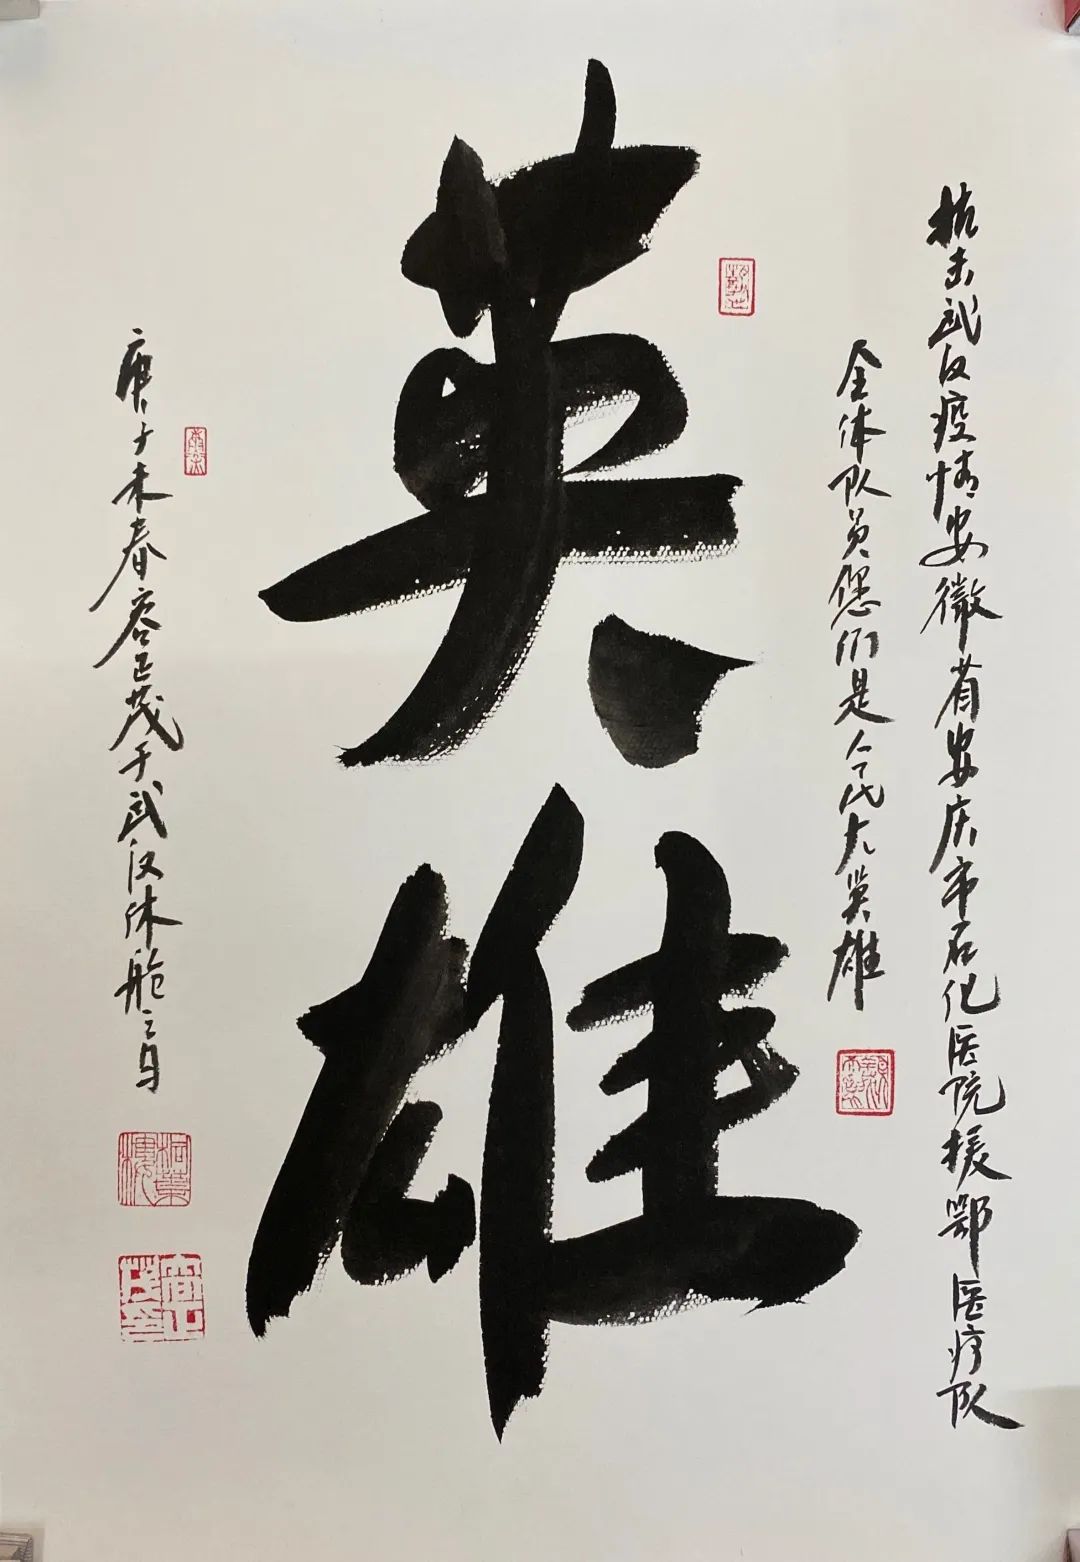 抗击武汉疫情安徽省安庆市石化医院援鄂医疗队
全体队员您们是今代大英雄
英雄
庚子末春容正茂于武汉休舱之
桐葉樓
容正茂印